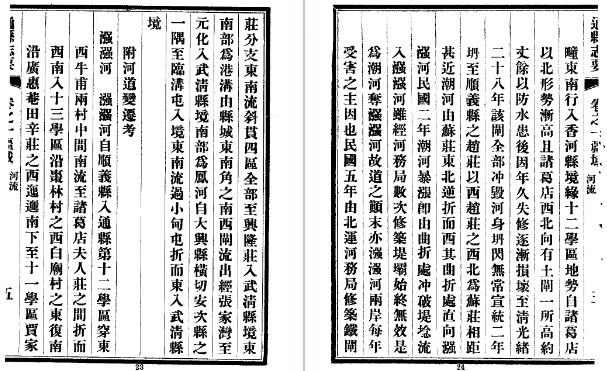 莊分支東南流斜貫四區全部至興隆莊入武清縣境東
南部為港溝由縣城東南角之南西閘流出經張家灣至
元化入武清縣境南部為鳳河自大興縣橫切安次縣之
一隅至臨溝屯入境東南流過小甸屯折而東入武清縣
境
附河道變遷考
漒漒河　漒漒河自順義縣入通縣第十二學區穿東
西牛甫兩村中間南流至諸葛店夫人莊之間折而
西南入十三學區沿棗林村之西白廟村之東復南
沿廣惠菴田辛莊之西迤邐南下至十一學區賈家
通縣志要 卷之一 疆域 河流 五
23
通縣志要 卷之一 疆域 河流
疃東南行入香河縣境緣十二學區地勢自諸葛店
以北形勢漸高且諸葛店西北向有土閘一所高約
丈餘以防水患後因年久失修逐漸損壞至清光緒
二十八年該閘全部冲毀河身坍閃無常宣統二年
坍至順義縣之趙莊以西趙莊之西北為蘇莊相距
甚近潮河由蘇莊東北逆折而西其曲折處直向漒
漒河民國二年潮河暴漲卽由曲折處冲破堤埝流
入漒漒河雖經河務局數次修築堤壩始終無效是
為潮河奪漒漒河故道之顚末亦漒漒河兩岸每年
受害之主因也民國五年由北運河務局修築鐵閘
24